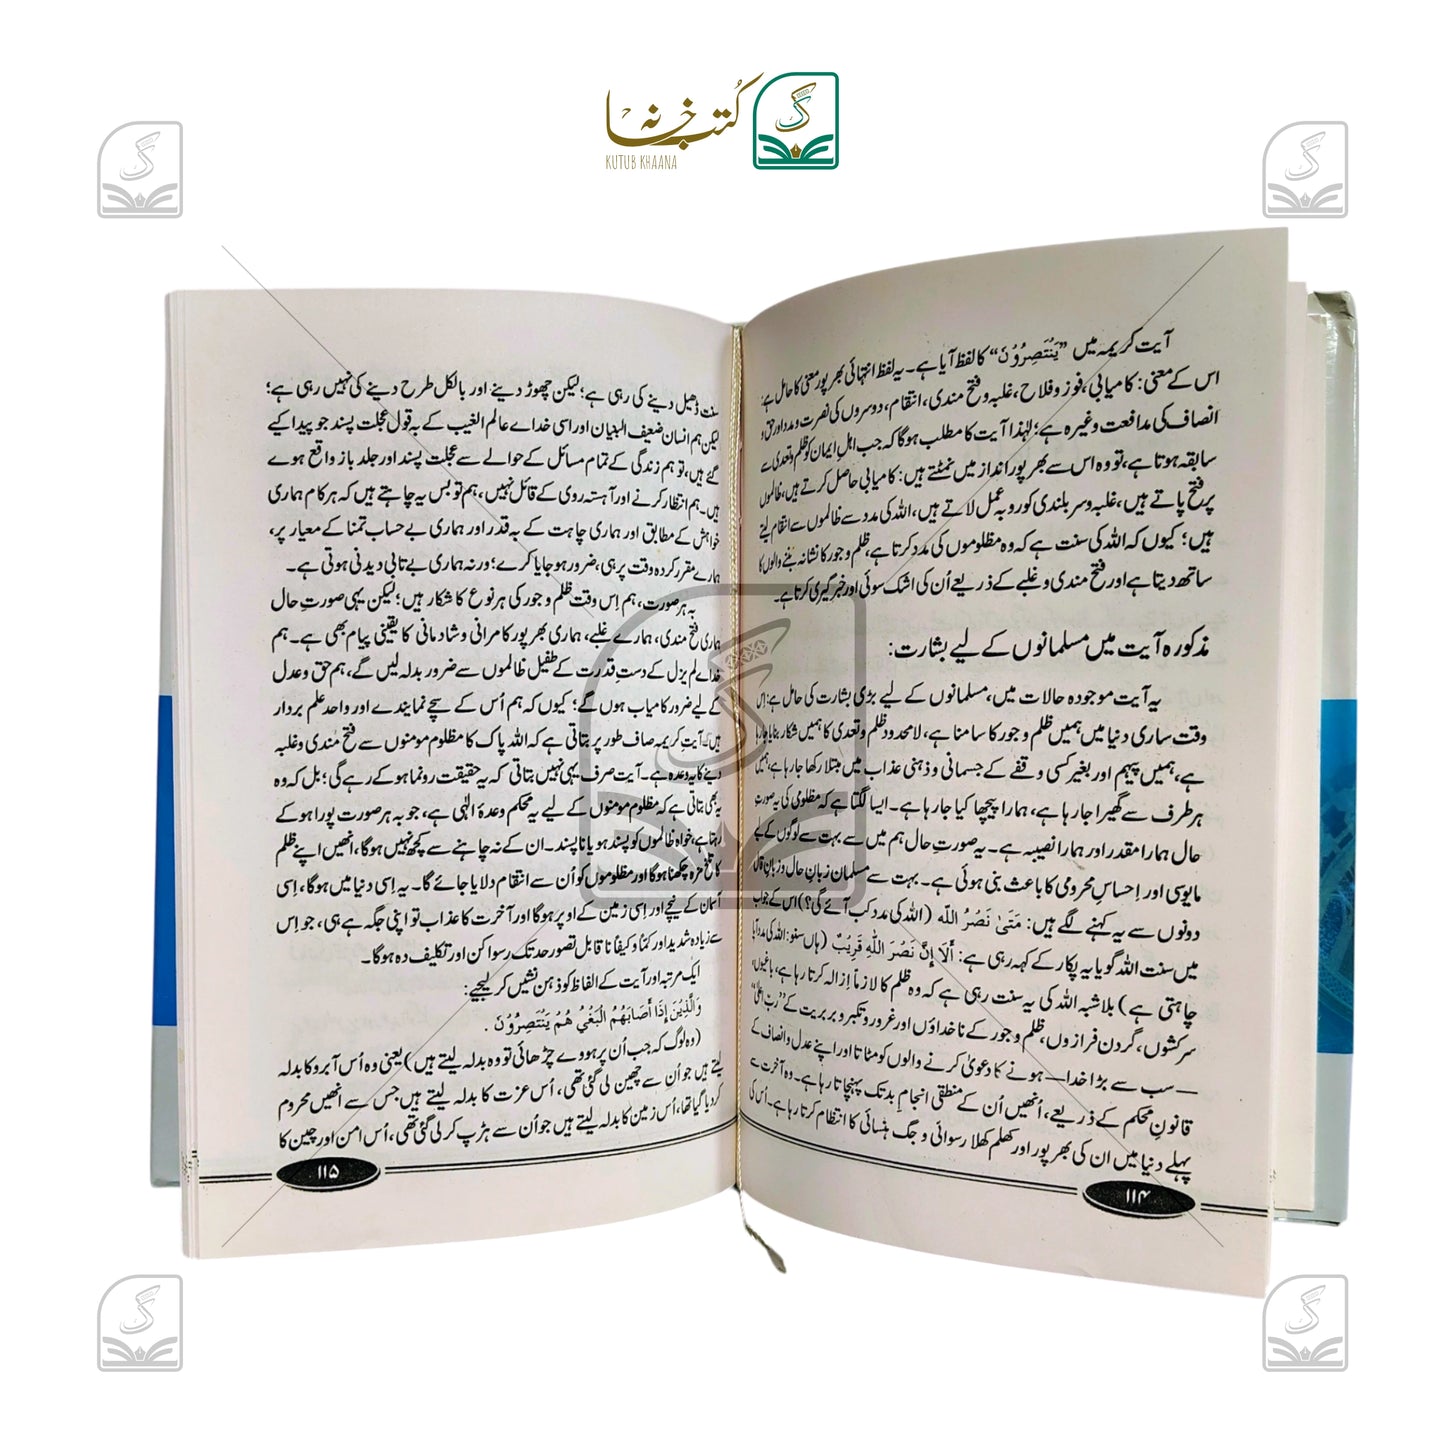 کتب خانہ
KUTUB KHAANA
آیت کریمہ میں ”یَنْتَصِرُوْنَ“ کا لفظ آیا ہے۔ یہ لفظ انتہائی بھرپور معنی کا حامل ہے:
اس کے معنی: کامیابی، فوز و فلاح، غلبہ و فتح مندی، انتقام، دوسروں کی نصرت و مدد اور حق و
انصاف کی مدافعت وغیرہ ہے؛ لہٰذا آیت کا مطلب ہوگا کہ جب اہلِ ایمان کو ظلم و تعدی سے
سابقہ ہوتا ہے، تو وہ اس سے بھرپور انداز میں نمٹتے ہیں: کامیابی حاصل کرتے ہیں، ظالموں
پر فتح پاتے ہیں، غلبہ و سربلندی کو روبہ عمل لاتے ہیں، اللہ کی مدد سے ظالموں سے انتقام لیتے
ہیں؛ کیوں کہ اللہ کی سنت ہے کہ وہ مظلوموں کی مدد کرتا ہے، ظلم و جور کا نشانہ بننے والوں کا
ساتھ دیتا ہے اور فتح مندی و غلبے کے ذریعے اُن کی اشک سوئی اور خبرگیری کرتا ہے۔
مذکورہ آیت میں مسلمانوں کے لیے بشارت:
یہ آیت موجودہ حالات میں، مسلمانوں کے لیے بڑی بشارت کی حامل ہے: اِس
وقت ساری دنیا میں ہمیں ظلم و جور کا سامنا ہے، لامحدود ظلم و تعدی کا ہمیں شکار بنایا جارہا
ہے، ہمیں پیہم اور بغیر کسی وقفے کے جسمانی و ذہنی عذاب میں مبتلا رکھا جارہا ہے، ہمیں
ہر طرف سے گھیرا جارہا ہے، ہمارا پیچھا کیا جارہا ہے۔ ایسا لگتا ہے کہ مظلومی کی یہ صورتِ
حال ہمارا مقدر اور ہمارا نصیبہ ہے۔ یہ صورتِ حال ہم میں سے بہت سے لوگوں کے لیے
مایوسی اور اِحساسِ محرومی کا باعث بنی ہوئی ہے۔ بہت سے مسلمان زبانِ حال و زبانِ قال
دونوں سے یہ کہنے لگے ہیں: مَتیٰ نَصْرُ اللّٰهِ (اللہ کی مدد کب آئے گی؟) اس کے جواب
میں سنت اللہ گویا یہ پکار کے کہہ رہی ہے: أَلَا إِنَّ نَصْرَ اللّٰهِ قَرِیْبٌ (ہاں سنو: اللہ کی مدد آیا
چاہتی ہے) بلاشبہ اللہ کی یہ سنت رہی ہے کہ وہ ظلم کا لازماً اِزالہ کرتا رہا ہے، باغیوں،
سرکشوں، گردن فرازوں، ظلم و جور کے ناخداؤں اور غرور و تکبر و بربریت کے ”ربِّ اعلیٰ“
— سب سے بڑا خدا — ہونے کا دعویٰ کرنے والوں کو مٹاتا اور اپنے عدل و انصاف کے
قانونِ محکم کے ذریعے، اُنھیں اُن کے منطقی انجامِ بد تک پہنچاتا رہا ہے۔ وہ آخرت سے
پہلے دنیا میں ان کی بھرپور اور کھلم کھلا رسوائی و جگ ہنسائی کا انتظام کرتا رہا ہے۔ اُس کی
۱۱۴
سنت ڈھیل دینے کی رہی ہے؛ لیکن چھوڑ دینے اور بالکل طرح دینے کی نہیں رہی ہے؛
لیکن ہم انسان ضعیف البیان اور اسی خداے عالم الغیب کے بہ قول عجلت پسند جو پیدا کیے
گئے ہیں، تو ہم زندگی کے تمام مسائل کے حوالے سے عجلت پسند اور جلد باز واقع ہوے
ہیں۔ ہم انتظار کرنے اور آہستہ روی کے قائل نہیں، ہم تو بس یہ چاہتے ہیں کہ ہر کام ہماری
خواہش کے مطابق اور ہماری چاہت کے بہ قدر اور ہماری بے حساب تمنا کے معیار پر،
ہمارے مقرر کردہ وقت پر ہی، ضرور ہوجایا کرے؛ ورنہ ہماری بے تابی دیدنی ہوتی ہے۔
بہ ہر صورت، ہم اِس وقت ظلم و جور کی ہر نوع کا شکار ہیں؛ لیکن یہی صورتِ حال
ہماری فتح مندی، ہمارے غلبے، ہماری بھرپور کامرانی و شادمانی کا یقینی پیام بھی ہے۔ ہم
خداے لم یزل کے دستِ قدرت کے طفیل ظالموں سے ضرور بدلہ لیں گے، ہم حق و عدل
کے لیے ضرور کامیاب ہوں گے؛ کیوں کہ ہم اُس کے سچے نمایندے اور واحد علم بردار
ہیں۔ آیتِ کریمہ صاف طور پر بتاتی ہے کہ اللہ پاک کا مظلوم مومنوں سے فتح مندی و غلبہ
دینے کا یہ وعدہ ہے۔ آیت صرف یہی نہیں بتاتی کہ یہ حقیقت رونما ہوکے رہے گی؛ بل کہ وہ
یہ بھی بتاتی ہے کہ مظلوم مومنوں کے لیے یہ محکم وعدۂ الٰہی ہے، جو بہ ہر صورت پورا ہوکے
رہتا ہے، خواہ ظالموں کو پسند ہو یا ناپسند۔ ان کے نہ چاہنے سے کچھ نہیں ہوگا، انھیں اپنے ظلم
کا تلخ مزہ چکھنا ہوگا اور مظلوموں کو اُن سے انتقام دلایا جائے گا۔ یہ اِسی دنیا میں ہوگا، اِسی
آسمان کے نیچے اور اِسی زمین کے اوپر ہوگا اور آخرت کا عذاب تو اپنی جگہ ہے ہی، جو اِس
سے زیادہ شدید اور کماً و کیفاً ناقابل تصور حد تک رسواکن اور تکلیف دہ ہوگا۔
ایک مرتبہ اور آیت کے الفاظ کو ذہن نشیں کرلیجیے:
وَالَّذِیْنَ إِذَا أَصَابَهُمُ الْبَغْیُ هُمْ یَنْتَصِرُوْنَ .
(وہ لوگ کہ جب اُن پر ہووے چڑھائی تو وہ بدلہ لیتے ہیں) یعنی وہ اُس آبرو کا بدلہ
لیتے ہیں جو اُن سے چھین لی گئی تھی، اُس عزت کا بدلہ لیتے ہیں جس سے انھیں محروم
کردیا گیا تھا، اُس زمین کا بدلہ لیتے ہیں جو اُن سے ہڑپ کرلی گئی تھی، اُس امن اور چین کا
۱۱۵